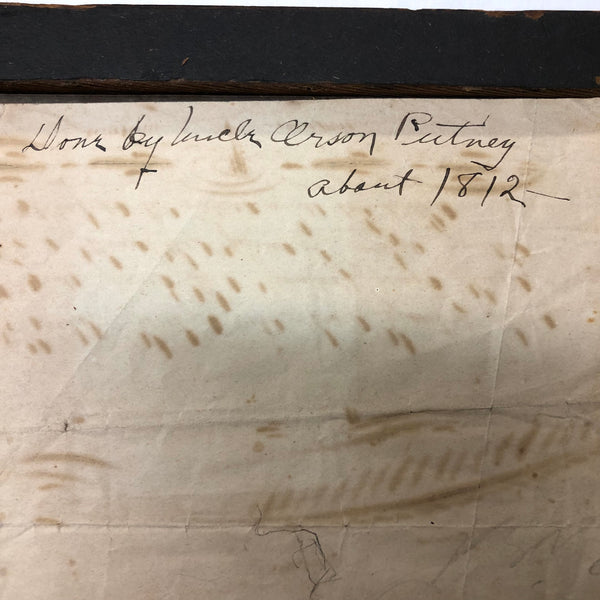 Done by Uncle Orson Putney
about 1812—